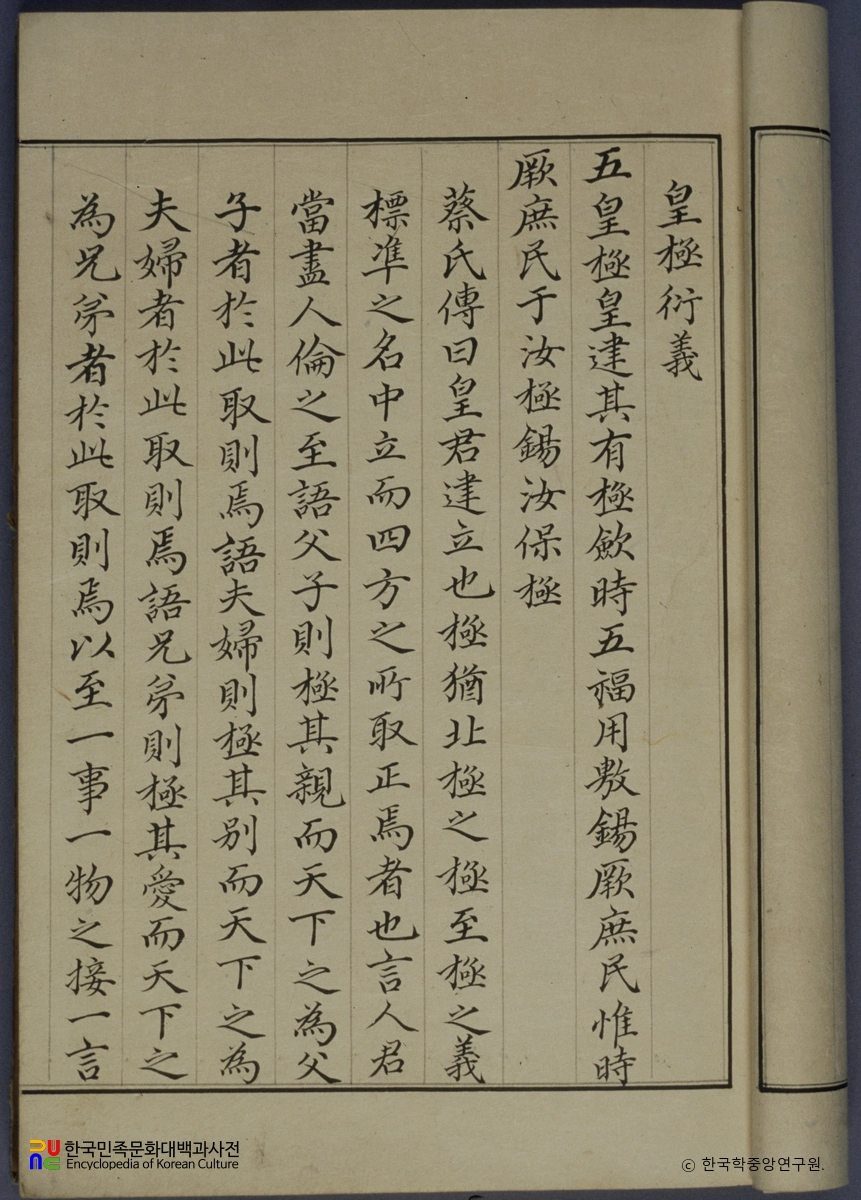 皇極衍義
五皇極皇建其有極歛時五福用敷錫厥庶民惟時
厥庶民于汝極錫汝保極
蔡氏傳曰皇君建立也極猶北極之極至極之義
標準之名中立而四方之所取正焉者也言人君
當盡人倫之至語父子則極其親而天下之為父
子者於此取則焉語夫婦則極其別而天下之為
夫婦者於此取則焉語兄弟則極其愛而天下之
為兄弟者於此取則焉以至一事一物之接一言
PUNE 한국민족문화대백과사전
Encyclopedia of Korean Culture
ⓒ 한국학중앙연구원.